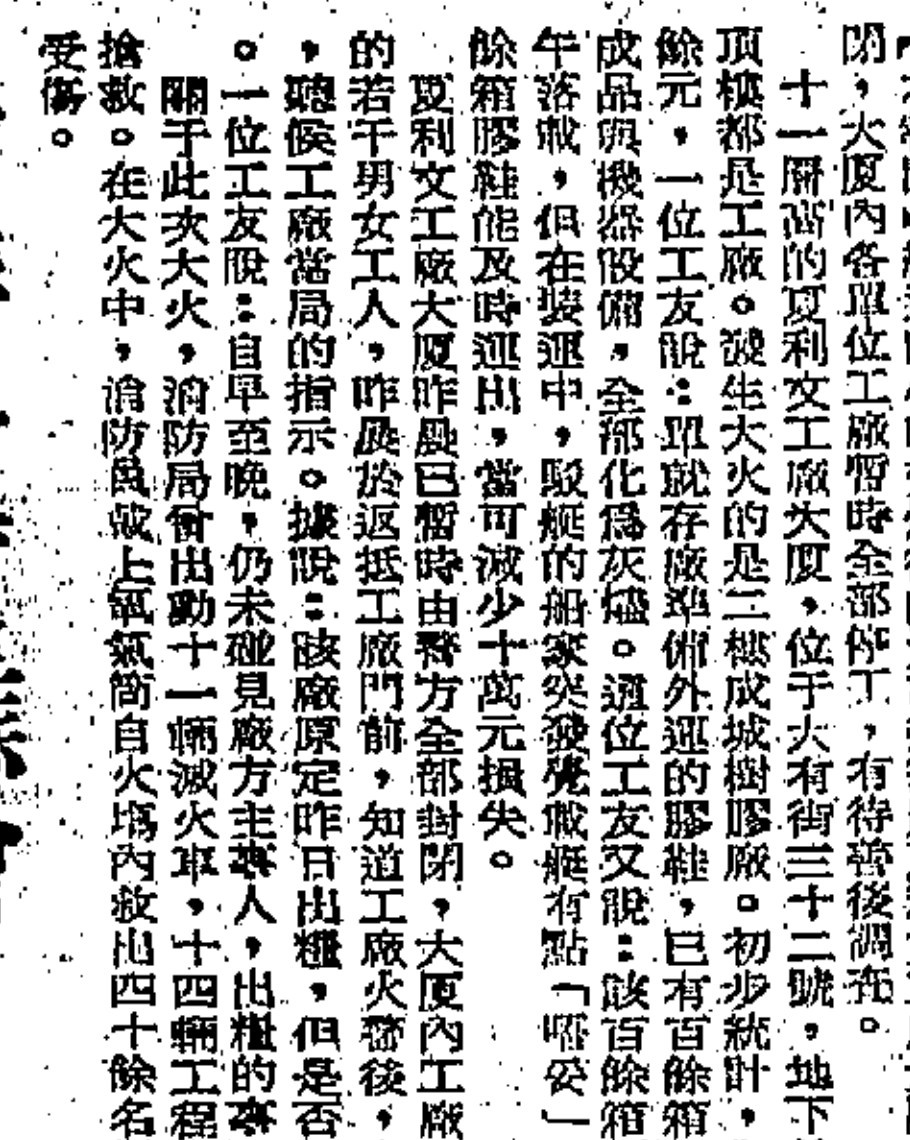 閉，大厦內各單位工廠暫時全部停工，有待善後調査。
十一層高的夏利文工廠大厦，位于大有街三十二號，地下
頂樓都是工廠。發生大火的是二樓成城樹膠廠。初步統計，
餘元，一位工友說：單就存廠準備外運的膠鞋，已有百餘箱
成品與機器設備，全部化爲灰燼。這位工友又說：該百餘箱
午落載，但在裝運中，駁艇的船家突發覺載艇有點「唔妥」
餘箱膠鞋能及時運出，當可減少十萬元損失。
夏利文工廠大厦昨晨已暫時由警方全部封閉，大厦內工廠
的若干男女工人，昨晨於返抵工廠門前，知道工廠火警後，
，聽候工廠當局的指示。據說：該廠原定昨日出糧，但是否
。一位工友說：自早至晚，仍未碰見廠方主事人，出糧的事
關于此次大火，消防局曾出動十一輛滅火車，十四輛工程
搶救。在大火中，消防員戴上氧氣筒自火塲內救出四十餘名
受傷。